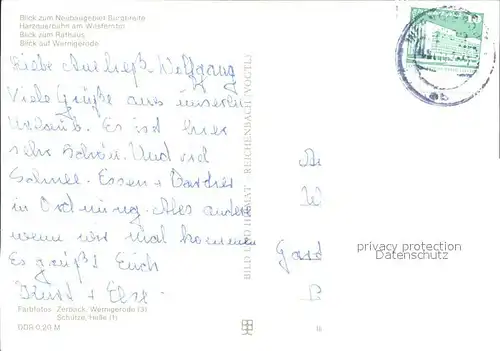 Blick zum Neubaugebiet Burgbreite
Harzquerbahn am Wilsterstei
Blick zum Rathaus
Blick auf Wernigerode
Liebe Wolfgang
Viele Grüße aus unseren
Urlaub. Es ist hier
sehr Schön. Und viel
Schnee. Essen +
in Ordnung. Alles andere
wenn wir mal kommen
Es grüßt Euch
Kurt + Else
Farbfotos: Zerback, Wernigerode (3)
Schütze, Halle (1)
DDR 0,20 M
BILD UND HEIMAT REICHENBACH (VOGTL)
W
Gard
privacy protection
Datenschutz